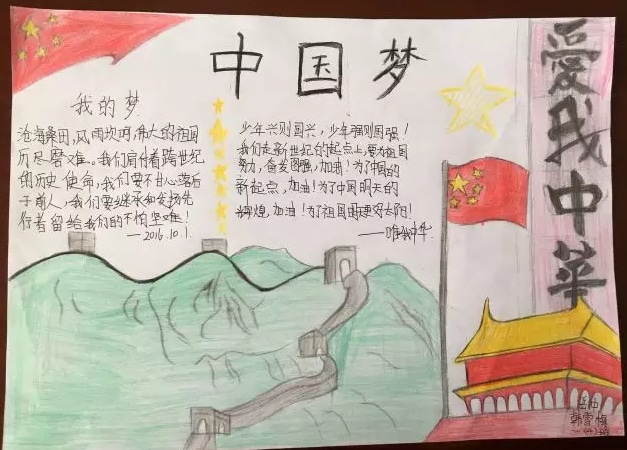 中国梦
爱我中華
我的梦
沧海桑田,风雨坎坷,伟大的祖国
历尽磨难。我们肩付着跨世纪
的历史使命,我们要不甘心落后
于前人,我们要继承和发扬先
行者留给我们的不怕坚难!
——2016.10.1.
少年兴则国兴,少年强则国强!
我们是新世纪的起点上,要为祖国
努力,奋发图强,加油!为了中国的
新起点,加油!为了中国明天的
辉煌,加油!为了祖国的更好去阳!
——唯我中华
韩雪梅